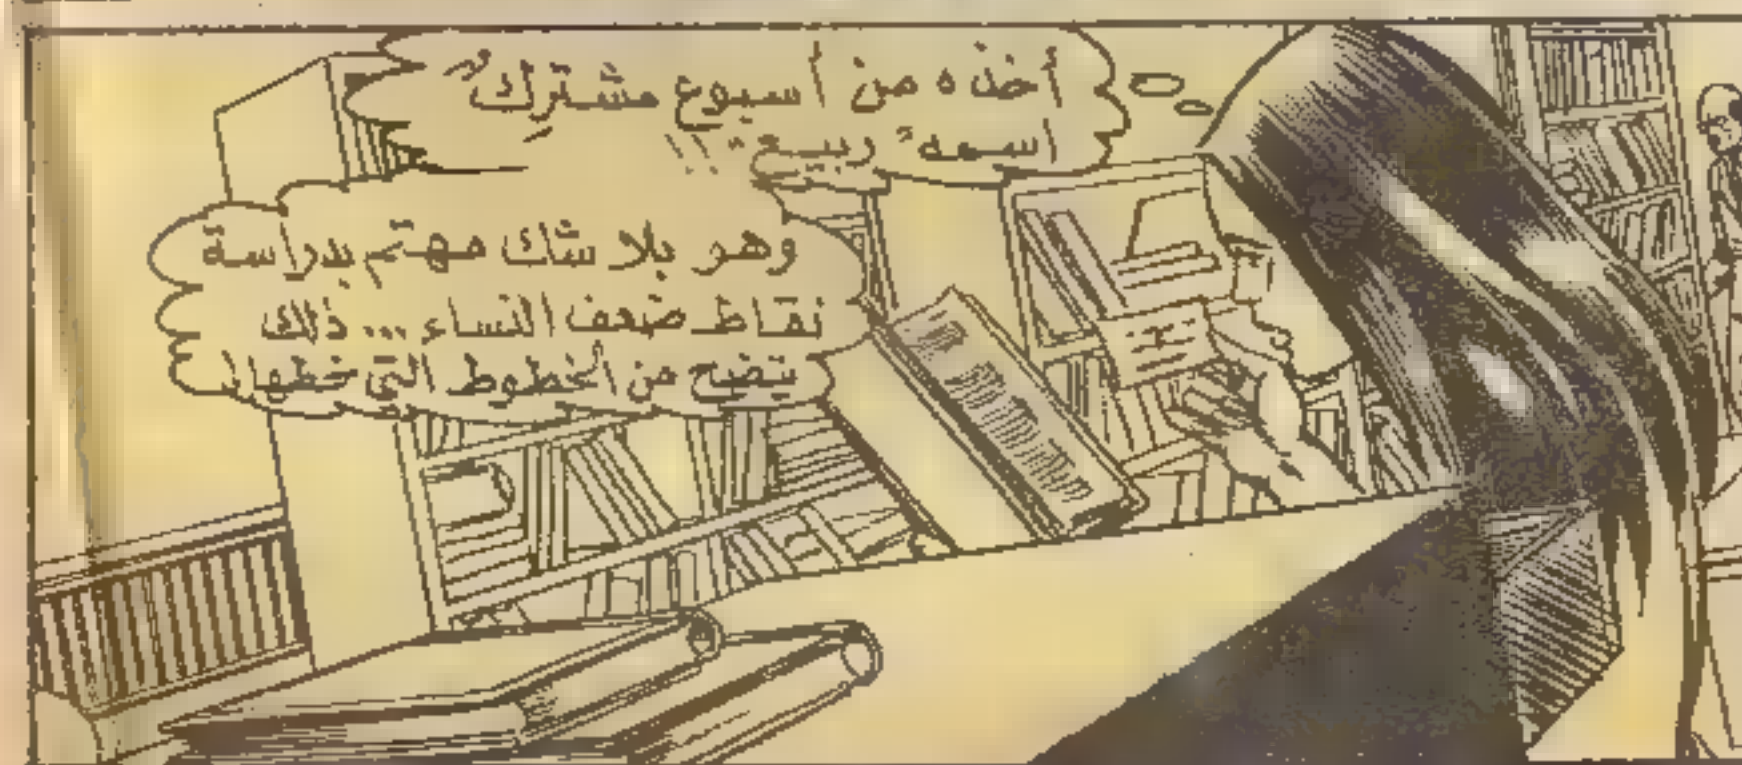 أخذه من أسبوع مشتركٌ
اسمه "ربيع" !!
وهو بلا شك مهتم بدراسة
نقاط ضعف النساء... ذلك
يتضح من الخطوط التي خطها!